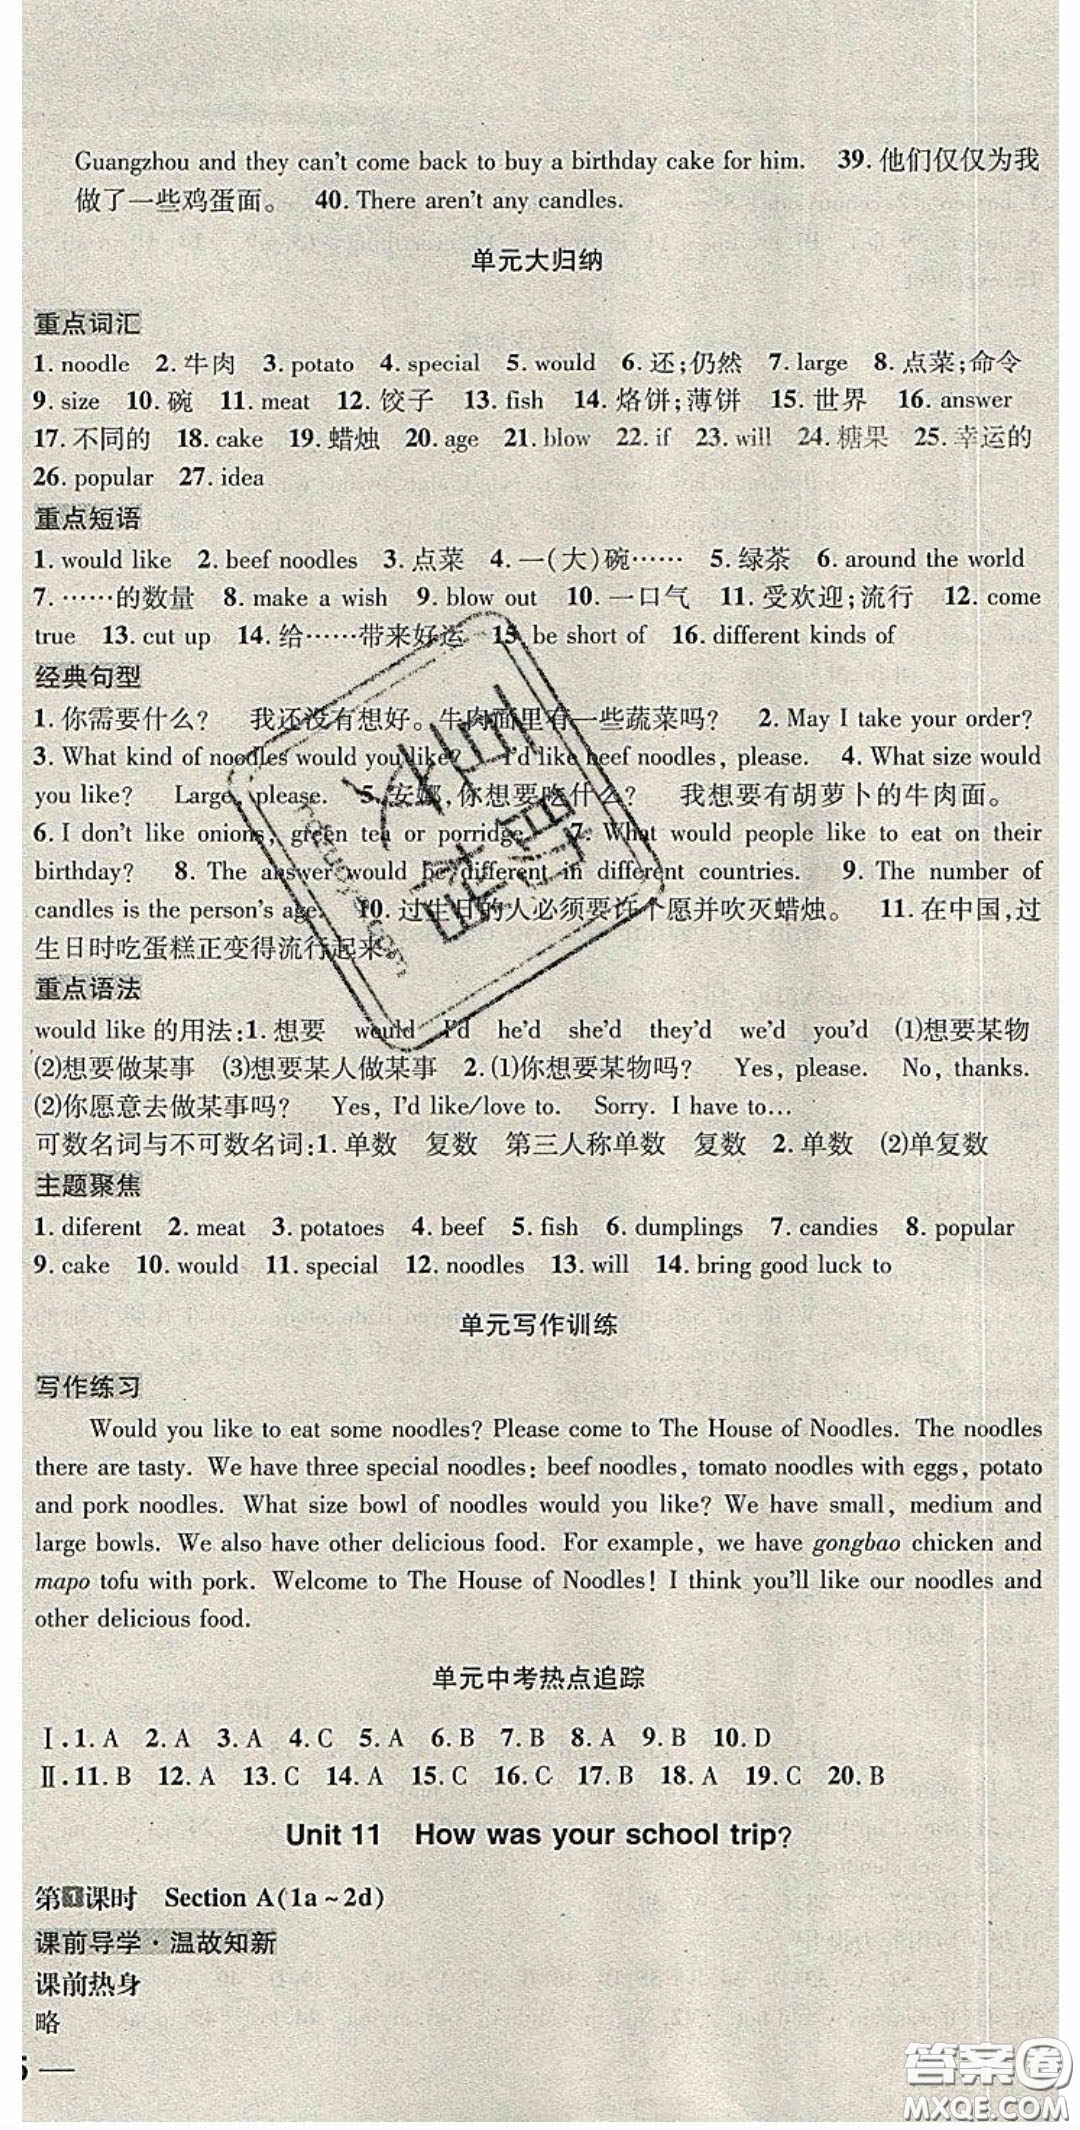 Guangzhou and they can't come back to buy a birthday cake for him. 39. 他们仅仅为我
做了一些鸡蛋面。 40. There aren't any candles.
单元大归纳
重点词汇
1. noodle 2. 牛肉 3. potato 4. special 5. would 6. 还;仍然 7. large 8. 点菜;命令
9. size 10. 碗 11. meat 12. 饺子 13. fish 14. 烙饼;薄饼 15. 世界 16. answer
17. 不同的 18. cake 19. 蜡烛 20. age 21. blow 22. if 23. will 24. 糖果 25. 幸运的
26. popular 27. idea
重点短语
1. would like 2. beef noodles 3. 点菜 4. 一(大)碗…… 5. 绿茶 6. around the world
7. ……的数量 8. make a wish 9. blow out 10. 一口气 11. 受欢迎;流行 12. come
true 13. cut up 14. 给……带来好运 15. be short of 16. different kinds of
经典句型
1. 你需要什么? 我还没有想好。牛肉面里有一些蔬菜吗? 2. May I take your order?
3. What kind of noodles would you like? I'd like beef noodles, please. 4. What size would
you like? Large, please. 5. 安娜,你想要吃什么? 我想要有胡萝卜的牛肉面。
6. I don't like onions, green tea or porridge. 7. What would people like to eat on their
birthday? 8. The answer would be different in different countries. 9. The number of
candles is the person's age. 10. 过生日的人必须要许个愿并吹灭蜡烛。 11. 在中国,过
生日时吃蛋糕正变得流行起来。
重点语法
would like 的用法:1. 想要 would I'd he'd she'd they'd we'd you'd (1)想要某物
(2)想要做某事 (3)想要某人做某事 2. (1)你想要某物吗? Yes, please. No, thanks.
(2)你愿意去做某事吗? Yes, I'd like/love to. Sorry. I have to...
可数名词与不可数名词:1. 单数 复数 第三人称单数 复数 2. 单数 (2)单复数
主题聚焦
1. diferent 2. meat 3. potatoes 4. beef 5. fish 6. dumplings 7. candies 8. popular
9. cake 10. would 11. special 12. noodles 13. will 14. bring good luck to
单元写作训练
写作练习
Would you like to eat some noodles? Please come to The House of Noodles. The noodles
there are tasty. We have three special noodles: beef noodles, tomato noodles with eggs, potato
and pork noodles. What size bowl of noodles would you like? We have small, medium and
large bowls. We also have other delicious food. For example, we have gongbao chicken and
mapo tofu with pork. Welcome to The House of Noodles! I think you'll like our noodles and
other delicious food.
单元中考热点追踪
Ⅰ. 1. A 2. A 3. A 4. C 5. A 6. B 7. B 8. A 9. B 10. D
Ⅱ. 11. B 12. A 13. C 14. A 15. C 16. C 17. B 18. A 19. C 20. B
Unit 11 How was your school trip?
第1课时 Section A(1a~2d)
课前导学·温故知新
课前热身
略
答案圈
MXQE.COM